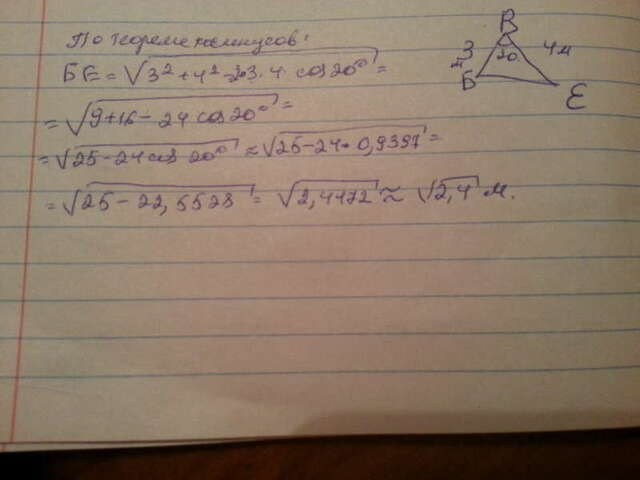 По теореме косинусов:
БЕ = √3² + 4² - 2·3·4 cos 20° =
= √9 + 16 - 24 cos 20° =
= √25 - 24 cos 20° ≈ √25 - 24 · 0,9397 =
= √25 - 22,5528 = √2,4472 ≈ √2,4 м.
В
3 м
20
4 м
Б
Е